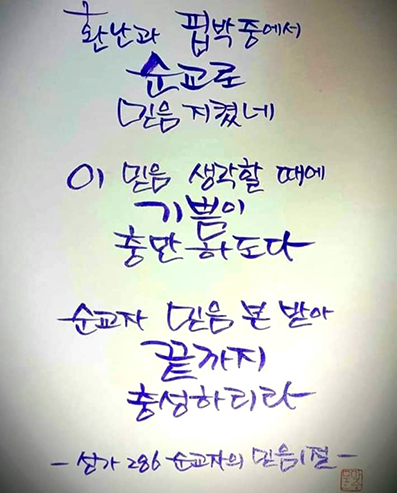 환난과 핍박중에서
순교로
믿음 지켰네
이 믿음 생각할 때에
기쁨이
충만 하도다
순교자 믿음 본 받아
끝까지
충성하리라
- 성가 286 순교자의 믿음 1절 -